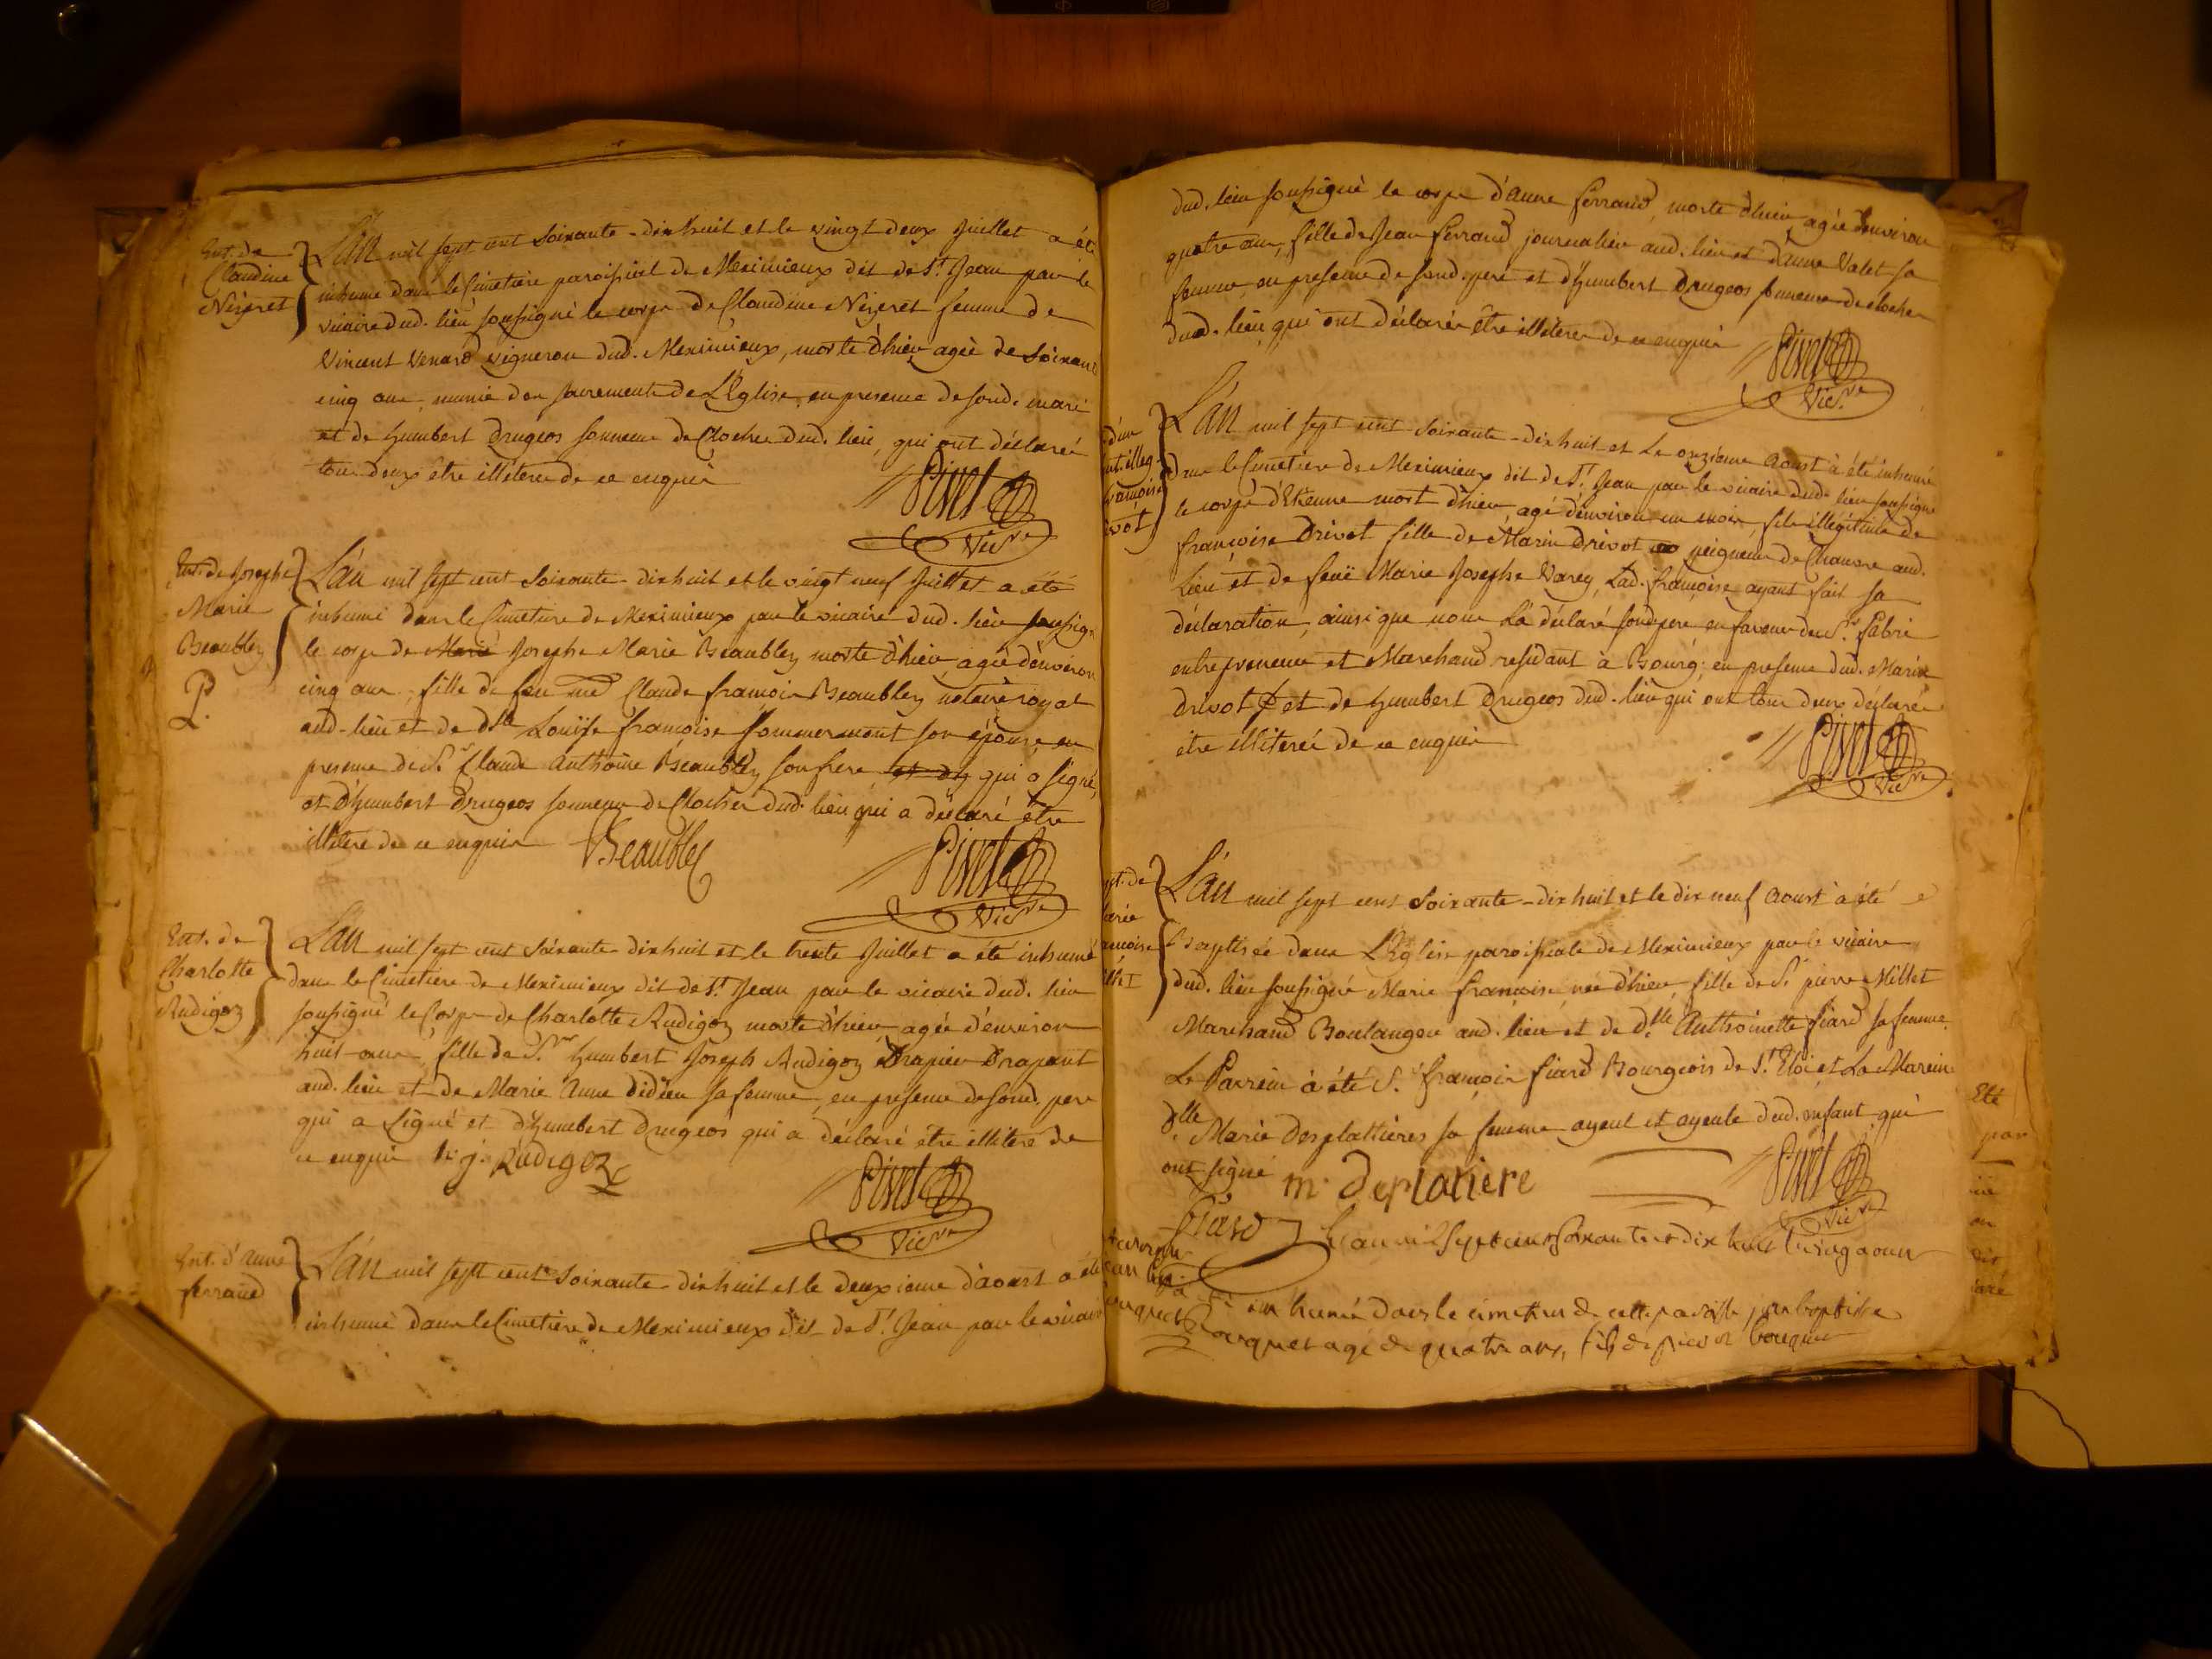 Ent. de
Claudine
Nizeret
L'an mil sept cent soixante-dix huit et le vingt deux Juillet a été
inhumé dans le Cimetiere paroissial de Meximieux dit de St. Jean par le
vicaire dud. lieu soussigné le corps de Claudine Nizeret femme de
Vincent Venard vigneron dud. Meximieux, morte d'hier agée de soixante
cinq ans, munie des sacrements de L'Eglise, en presence de sond. mari
et de humbert Drugeos sonneur de Clocher dud. lieu, qui ont déclaré
tous deux être illitéré de ce enquis
Pivet
Vicre
Ent. de Josephe
Marie
Beaublez
P.
L'an mil sept cent soixante-dix huit et le vingt neuf Juillet a été
inhumé dans le Cimetiere de Meximieux par le vicaire dud. lieu soussigné
le corps de Marie Josephe Marie Beaublez morte d'hier, agée d'environ
cinq ans, fille de feu me Claude françois Beaublez notaire royal
aud. lieu et de dlle Louise françoise Sommermont son épouse, en
presence de Sr. Claude Anthoine Beaublez son frere et de qui a signé,
et d'humbert Drugeos sonneur de Clocher dud. lieu qui a déclaré être
illitéré de ce enquis
Beaublez
Pivet
Vicre
Ent. de
Charlotte
Rudigoz
L'an mil sept cent soixante-dix huit et le trente Juillet a été inhumé
dans le Cimetiere de Meximieux dit de St. Jean par le vicaire dud. lieu
soussigné le Corps de Charlotte Rudigoz morte d'hier, agée d'environ
huit ans, fille de Sr. humbert Joseph Rudigoz Drapier Drapant
aud. lieu et de Marie Anne Didieu sa femme, en presence de sond. pere
qui a signé et d'humbert Drugeos qui a déclaré être illitéré de
ce enquis h. j. Rudigoz
Pivet
Vicre
Ent. d'anne
ferraud
L'an mil sept cent soixante-dix huit et le deuxieme d'aoust a été
inhumé dans le Cimetiere de Meximieux dit de St. Jean par le vicaire
dud. lieu soussigné le corps d'anne ferraud, morte d'hier, agée d'environ
quatre ans, fille de Jean ferraud journalier aud. lieu et d'anne Valet sa
femme, en presence de sond. pere et d'humbert Drugeos sonneur de clocher
dud. lieu, qui ont déclaré être illitéré de ce enquis
Pivet
Vicre
illeg.
françoise
L'an mil sept cent soixante-dix huit et le onzieme aoust à été inhumé
dans le Cimetiere de Meximieux dit de St. Jean par le vicaire dud. lieu soussigné
le corps d'Etienne mort d'hier, agé d'environ un mois, fils illégitime de
françoise Drivot fille de Marin Drivot peigneur de Chanvre aud.
lieu et de feuë Marie Josephe Varey, Lad. françoise ayant fait sa
déclaration, ainsi que nous L'a déclaré sond. pere en faveur du Sr. fabri
entrepreneur et Marchand residant à Bourg; en presence dud. Marin
Drivot et de humbert Drugeos dud. lieu qui ont tous deux déclaré
être illiteré de ce enquis
Pivet
Vicre
L'an mil sept cent soixante-dix huit et le dix neuf aoust à été
Baptisée dans L'Eglise paroissiale de Meximieux par le vicaire
dud. lieu soussigné Marie françoise née d'hier, fille de Sr. pierre Millet
Marchand Boulanger aud. lieu et de dlle Anthoinette fiard sa femme
Le Parrein à été Sr. françois fiard Bourgeois de St. Eloi et La Mareine
dlle Marie Desplattieres sa femme ayeul et ayeule dud. enfant qui
ont signé
m. deplatiere
Pivet
Vicre
fiard
L'an mil sept cent soixante et dix huit le vingt aoust
a été inhumé dans le cimetiere de cette paroisse jean baptiste
bouquet agé de quatre ans, fils de bouquet